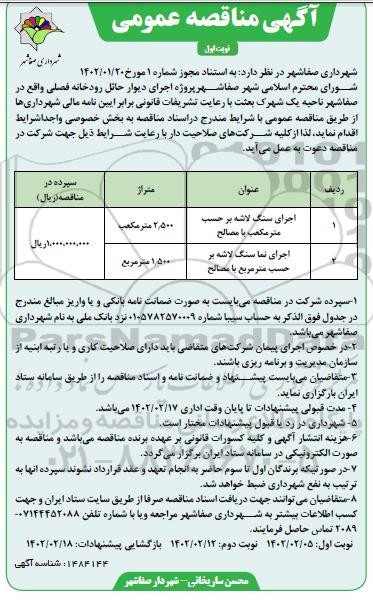 آگهی مناقصه عمومی
نوبت اول
شهرداری صفاشهر
شهرداری صفاشهر در نظر دارد: به استناد مجوز شماره ۱ مورخ ۱۴۰۲/۰۱/۲۰
شورای محترم اسلامی شهر صفاشهر پروژه اجرای دیوار حائل رودخانه فصلی واقع در
صفاشهر ناحیه یک شهرک بعثت با رعایت تشریفات قانونی برابر آیین نامه مالی شهرداری‌ها
از طریق مناقصه عمومی با شرایط مندرج در اسناد مناقصه به بخش خصوصی واجد شرایط
اقدام نماید، لذا از کلیه شرکت‌های صلاحیت دار با رعایت شرایط ذیل جهت شرکت در
مناقصه دعوت به عمل می‌آید.
ردیف عنوان متراژ سپرده در مناقصه(ریال)
۱ اجرای سنگ لاشه بر حسب مترمکعب با مصالح ۲٫۵۰۰ مترمکعب ۱.۰۰۰.۰۰۰.۰۰۰ریال
۲ اجرای نما سنگ لاشه بر حسب مترمربع با مصالح ۱٫۵۰۰ مترمربع
۱-سپرده شرکت در مناقصه می‌بایست به صورت ضمانت نامه بانکی و یا واریز مبالغ مندرج
در جدول فوق الذکر به حساب سیبا شماره ۰۱۰۵۷۸۲۵۷۰۰۰۹ نزد بانک ملی به نام شهرداری
صفاشهر می‌باشد.
۲-در خصوص اجرای پیمان شرکت‌های متقاضی باید دارای صلاحیت کاری و یا رتبه ابنیه از
سازمان مدیریت و برنامه ریزی باشند.
۳-متقاضیان می‌بایست پیشنهاد و ضمانت نامه و اسناد مناقصه را از طریق سامانه ستاد
ایران بارگزاری نماید.
۴- مدت قبولی پیشنهادات تا پایان وقت اداری ۱۴۰۲/۰۲/۱۷ می‌باشد.
۵- شهرداری در رد یا قبول پیشنهادات مختار است.
۶-هزینه انتشار آگهی و کلیه کسورات قانونی بر عهده برنده مناقصه می‌باشد و مناقصه به
صورت الکترونیکی در سامانه ستاد ایران برگزار می‌گردد.
۷-در صورتیکه برندگان اول تا سوم حاضر به انجام تعهد و عقد قرارداد نشوند سپرده آنها به
ترتیب به نفع شهرداری ضبط خواهد شد.
۸-متقاضیان می‌توانند جهت دریافت اسناد مناقصه صرفا از طریق سایت ستاد ایران و جهت
کسب اطلاعات بیشتر به شهرداری صفاشهر مراجعه و یا با شماره تلفن ۰۷۱۴۴۴۵۲۰۸۸-
۲۰۸۹ تماس حاصل فرمایند.
نوبت اول: ۱۴۰۲/۰۲/۰۵ نوبت دوم: ۱۴۰۲/۰۲/۱۲ بازگشایی پیشنهادات: ۱۴۰۲/۰۲/۱۸
شناسه آگهی: ۱۴۸۴۱۴۴
محسن ساریخانی – شهردار صفاشهر